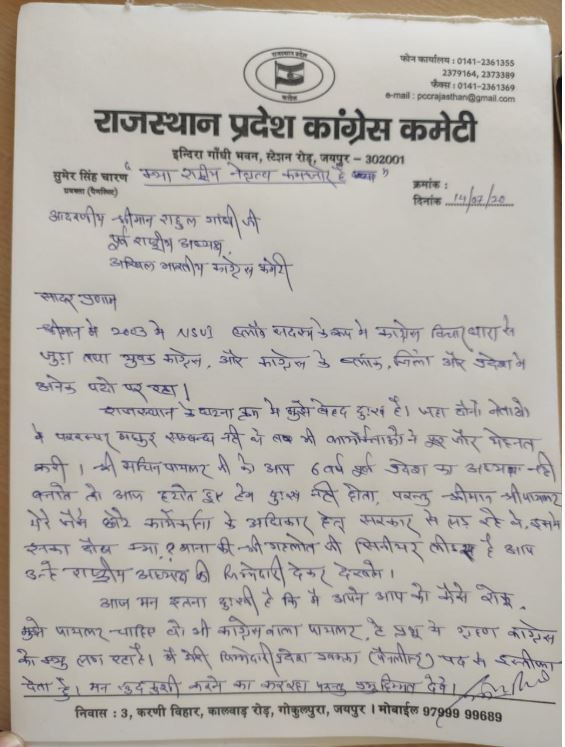 राजस्थान प्रदेश
कांग्रेस
फोन कार्यालय : 0141-2361355
2379164, 2373389
फैक्स : 0141-2361369
e-mail : pccrajasthan@gmail.com
राजस्थान प्रदेश कांग्रेस कमेटी
इन्दिरा गाँधी भवन, स्टेशन रोड़, जयपुर – 302001
सुमेर सिंह चारण
प्रवक्ता (पैनलिस्ट)
" क्या राष्ट्रीय नेतृत्व कमजोर है "
क्रमांक :
दिनांक 14/07/20
आदरणीय श्रीमान राहुल गांधी जी
पूर्व राष्ट्रीय अध्यक्ष
अखिल भारतीय कांग्रेस कमेटी
सादर प्रणाम
श्रीमान मैं 2003 में NSUI ब्लॉक सदस्य के रूप में कांग्रेस विचारधारा से
जुड़ा तथा युवक कांग्रेस, और कांग्रेस के ब्लॉक, जिला और प्रदेश में
अनेक पदों पर रहा।
राजस्थान के घटना क्रम से मुझे बेहद दुःख है। जहा दोनों नेताओ
में परस्पर मधुर सम्बन्ध नही थे तब भी कार्यकर्ताओं ने पूरजोर मेहनत
करी। श्री सचिन पायलट जी को आप 6 वर्ष पूर्व प्रदेश का अध्यक्ष नही
बनाते तो आज हमें दुःख नही होता, परन्तु श्रीमान श्री पायलट
मेरे जैसे छोटे कार्यकर्ता के अधिकार हेतु सरकार से लड़ रहे थे, इसमे
इनका दोष क्या? माना की श्री गहलोत जी सिनीयर लीडर है आप
उन्हे राष्ट्रीय अध्यक्ष की जिम्मेदारी देकर देखते।
आज मन इतना दुःखी है कि मै अपने आप को कैसे रोकू,
मुझे पायलट चाहिए वो भी कांग्रेस वाला पायलट, है प्रभू ये ग्रहण कांग्रेस
को क्यू लग रहा है। मैं मेरी जिम्मेदारी प्रदेश प्रवक्ता (पैनलिस्ट) पद से इस्तीफा
देता हूं। मन खुदकुशी करने का कर रहा परन्तु प्रभु हिम्मत देवे।
निवास : 3, करणी विहार, कालवाड़ रोड़, गोकुलपुरा, जयपुर । मोबाईल 97999 99689